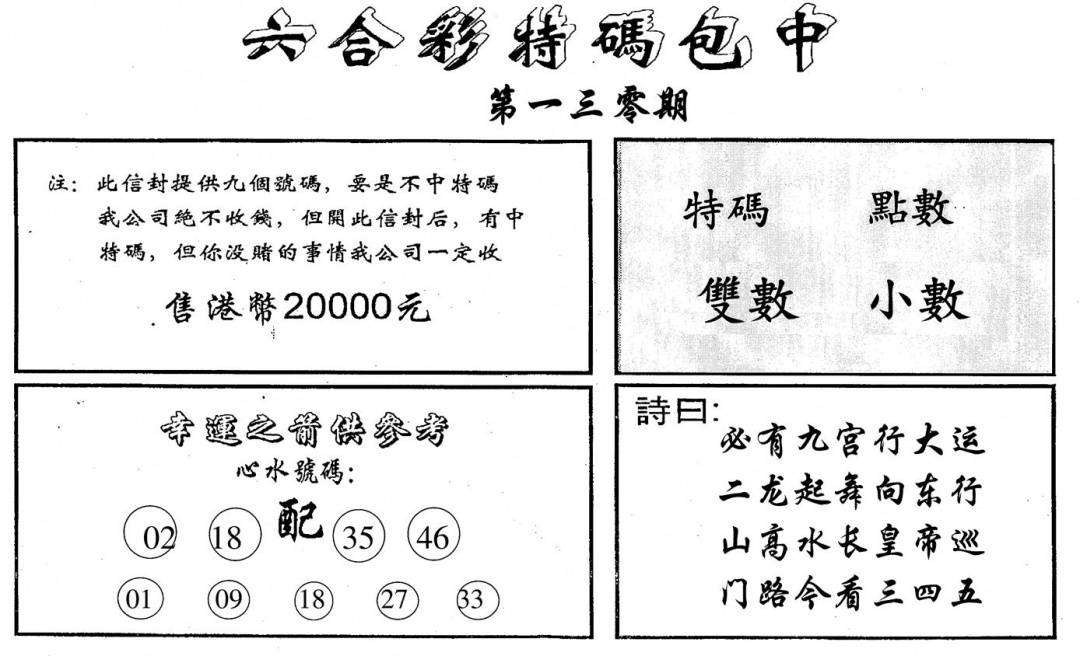 六合彩特碼包中
第一三零期
注：此信封提供九個號碼，要是不中特碼
我公司絶不收錢，但開此信封后，有中
特碼，但你没賭的事情我公司一定收
售港幣20000元
特碼 點數
雙數 小數
幸運之箭供參考
心水號碼：
02 18 配 35 46
01 09 18 27 33
詩曰：
必有九宫行大运
二龙起舞向东行
山高水长皇帝巡
门路今看三四五